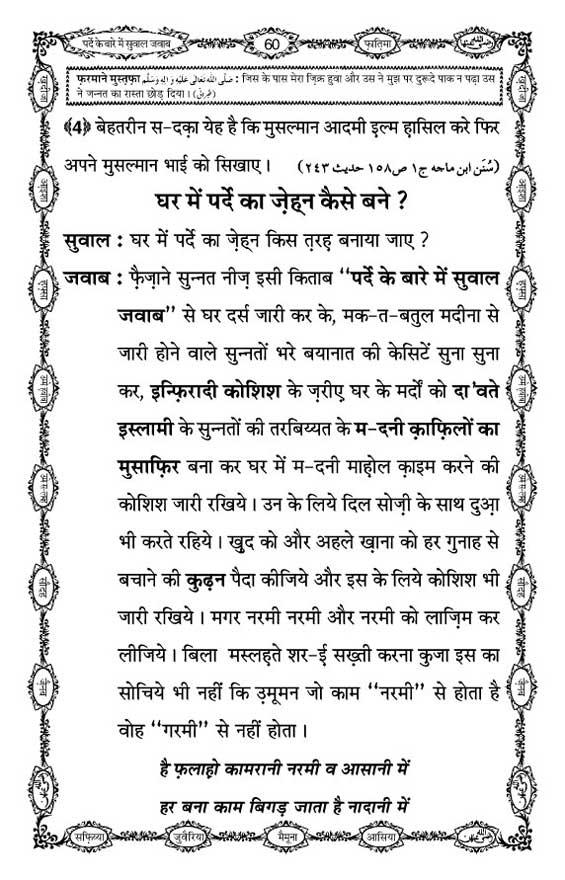 पर्दे के बारे में सुवाल जवाब
60
फ़ातिमा
फ़रमाने मुस्तफ़ा صَلَّى اللّٰهُ تَعَالٰى عَلَيْهِ وَاٰلِهٖ وَسَلَّم : जिस के पास मेरा ज़िक्र हुवा और उस ने मुझ पर दुरूदे पाक न पढ़ा उस
ने जन्नत का रास्ता छोड़ दिया। (طبرانی)
﴾4﴿ बेहतरीन स-दक़ा येह है कि मुसल्मान आदमी इल्म हासिल करे फिर
अपने मुसल्मान भाई को सिखाए। (سُنَن ابن ماجه ج١ ص١٥٨ حديث ٢٤٣)
घर में पर्दे का ज़ेह्न कैसे बने ?
सुवाल : घर में पर्दे का ज़ेह्न किस त़रह़ बनाया जाए ?
जवाब : फ़ैज़ाने सुन्नत नीज़ इसी किताब “पर्दे के बारे में सुवाल
जवाब” से घर दर्स जारी कर के, मक-त-बतुल मदीना से
जारी होने वाले सुन्नतों भरे बयानात की केसिटें सुना सुना
कर, इन्फ़िरादी कोशिश के ज़रीए घर के मर्दों को दा'वते
इस्लामी के सुन्नतों की तरबिय्यत के म-दनी क़ाफ़िलों का
मुसाफ़िर बना कर घर में म-दनी माह़ोल क़ाइम करने की
कोशिश जारी रखिये। उन के लिये दिल सोज़ी के साथ दुआ़
भी करते रहिये। ख़ुद को और अहले ख़ाना को हर गुनाह से
बचाने की कुढ़न पैदा कीजिये और इस के लिये कोशिश भी
जारी रखिये। मगर नरमी नरमी और नरमी को लाज़िम कर
लीजिये। बिला मस्लहते शर-ई सख़्ती करना कुजा इस का
सोचिये भी नहीं कि उ़मूमन जो काम “नरमी” से होता है
वोह “गरमी” से नहीं होता।
है फ़लाह़ो कामरानी नरमी व आसानी में
हर बना काम बिगड़ जाता है नादानी में
सफ़िय्या
जुवैरिया
मैमूना
आसिया